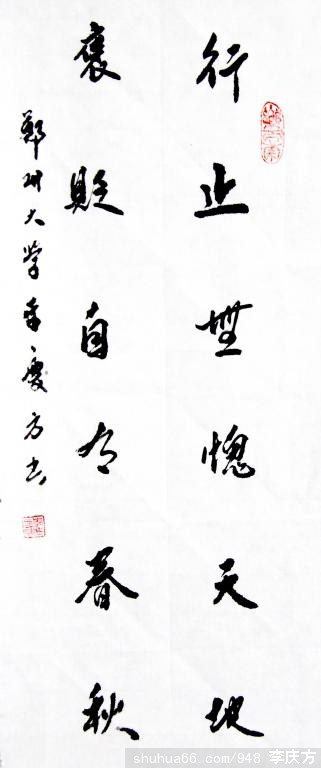 行止無愧天地
褒貶自有春秋
鄭州大学李慶方书
shuhua66.com/948 李庆方